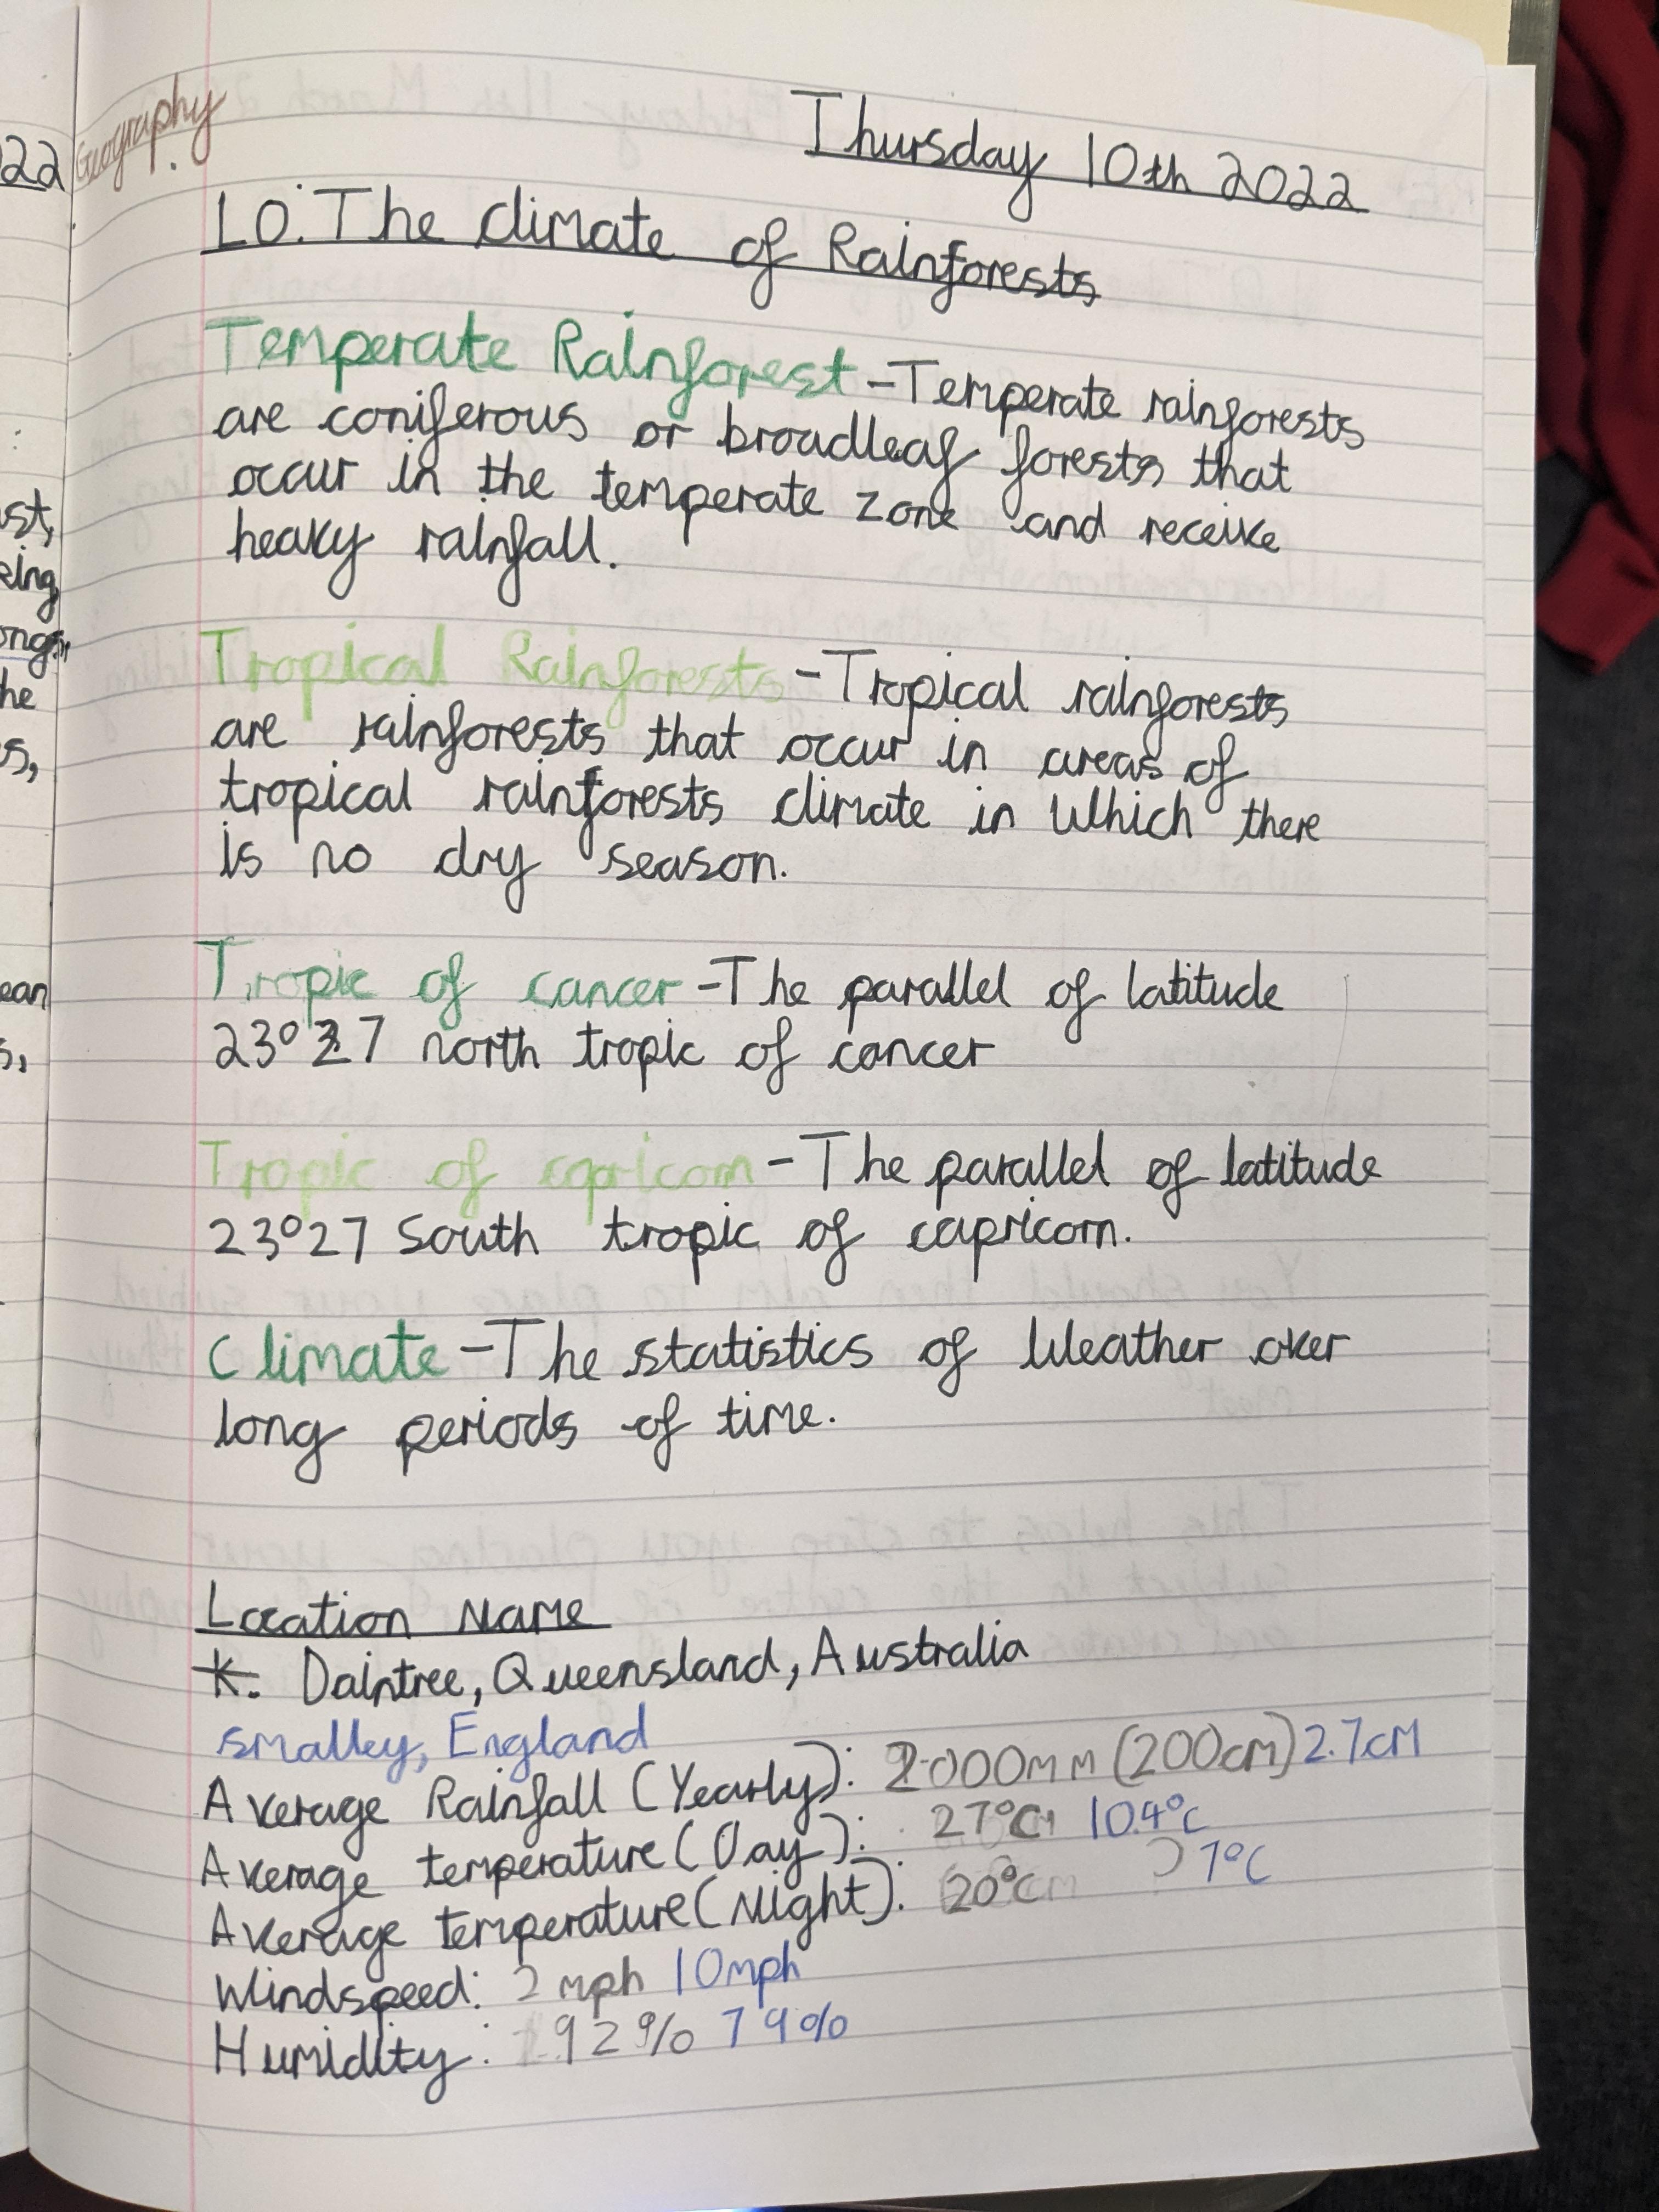 22
Geography
Thursday 10th 2022
LO: The climate of Rainforests
Temperate Rainforest - Temperate rainforests
are coniferous or broadleaf forests that
occur in the temperate zone and receive
heavy rainfall.
Tropical Rainforests - Tropical rainforests
are rainforests that occur in areas of
tropical rainforests climate in which there
is no dry season.
Tropic of cancer - The parallel of latitude
23°27 north tropic of cancer
Tropic of capricorn - The parallel of latitude
23°27 South tropic of capricorn.
Climate - The statistics of Weather over
long periods of time.
Location Name
Daintree, Queensland, Australia
Smalley, England
Average Rainfall (Yearly): 2000mm (200cm) 2.7cm
Average temperature (Day): 27°C 10.4°C
Average temperature (Night): 20°C 7°C
Windspeed: 2 mph 10mph
Humidity: 92% 79%